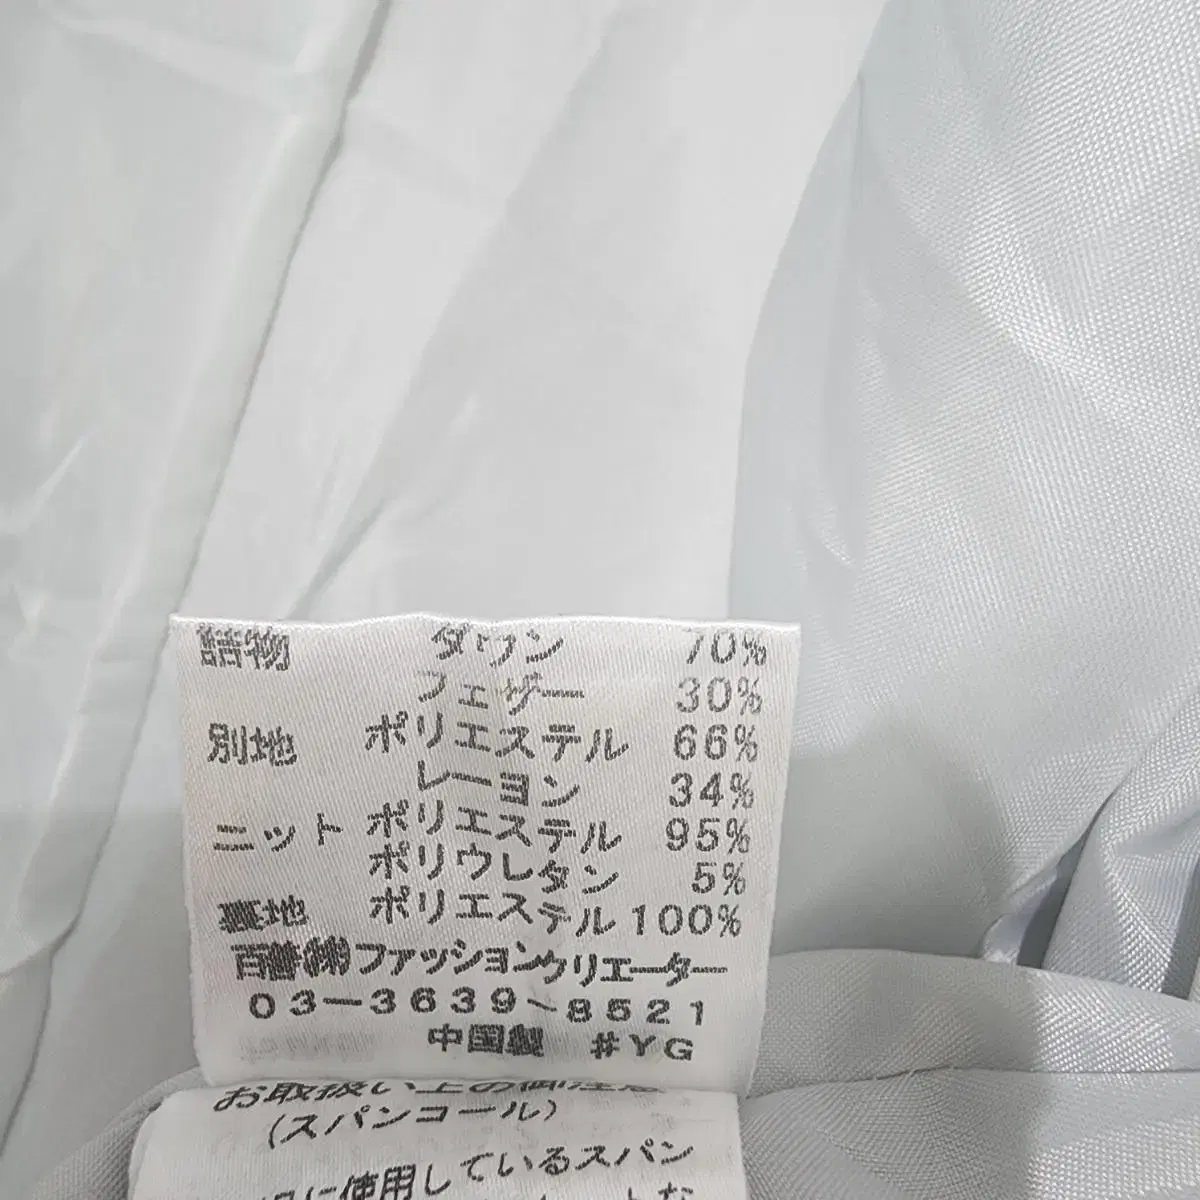 詰物 ダウン 70%
フェザー 30%
別地 ポリエステル 66%
レーヨン 34%
ニット ポリエステル 95%
ポリウレタン 5%
裏地 ポリエステル 100%
百善(株)ファッションクリエーター
03-3639-8521
中国製 #YG
お取扱い上の御注意
(スパンコール)
に使用しているスパン